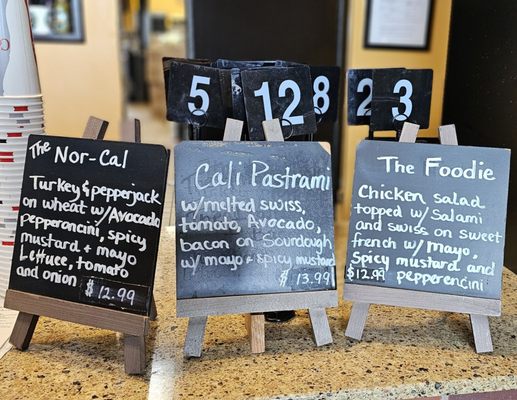 5
12
8
2
3
The Nor-Cal
Turkey & pepperjack
on wheat w/Avocado
pepperoncini, spicy
mustard + mayo
Lettuce, tomato
and onion
$12.99
Cali Pastrami
w/melted swiss,
tomato, Avocado,
bacon on Sourdough
w/ mayo & spicy mustard
$13.99
The Foodie
Chicken salad
topped w/ Salami
and swiss on sweet
french w/mayo,
Spicy mustard and
$12.99 pepperoncini